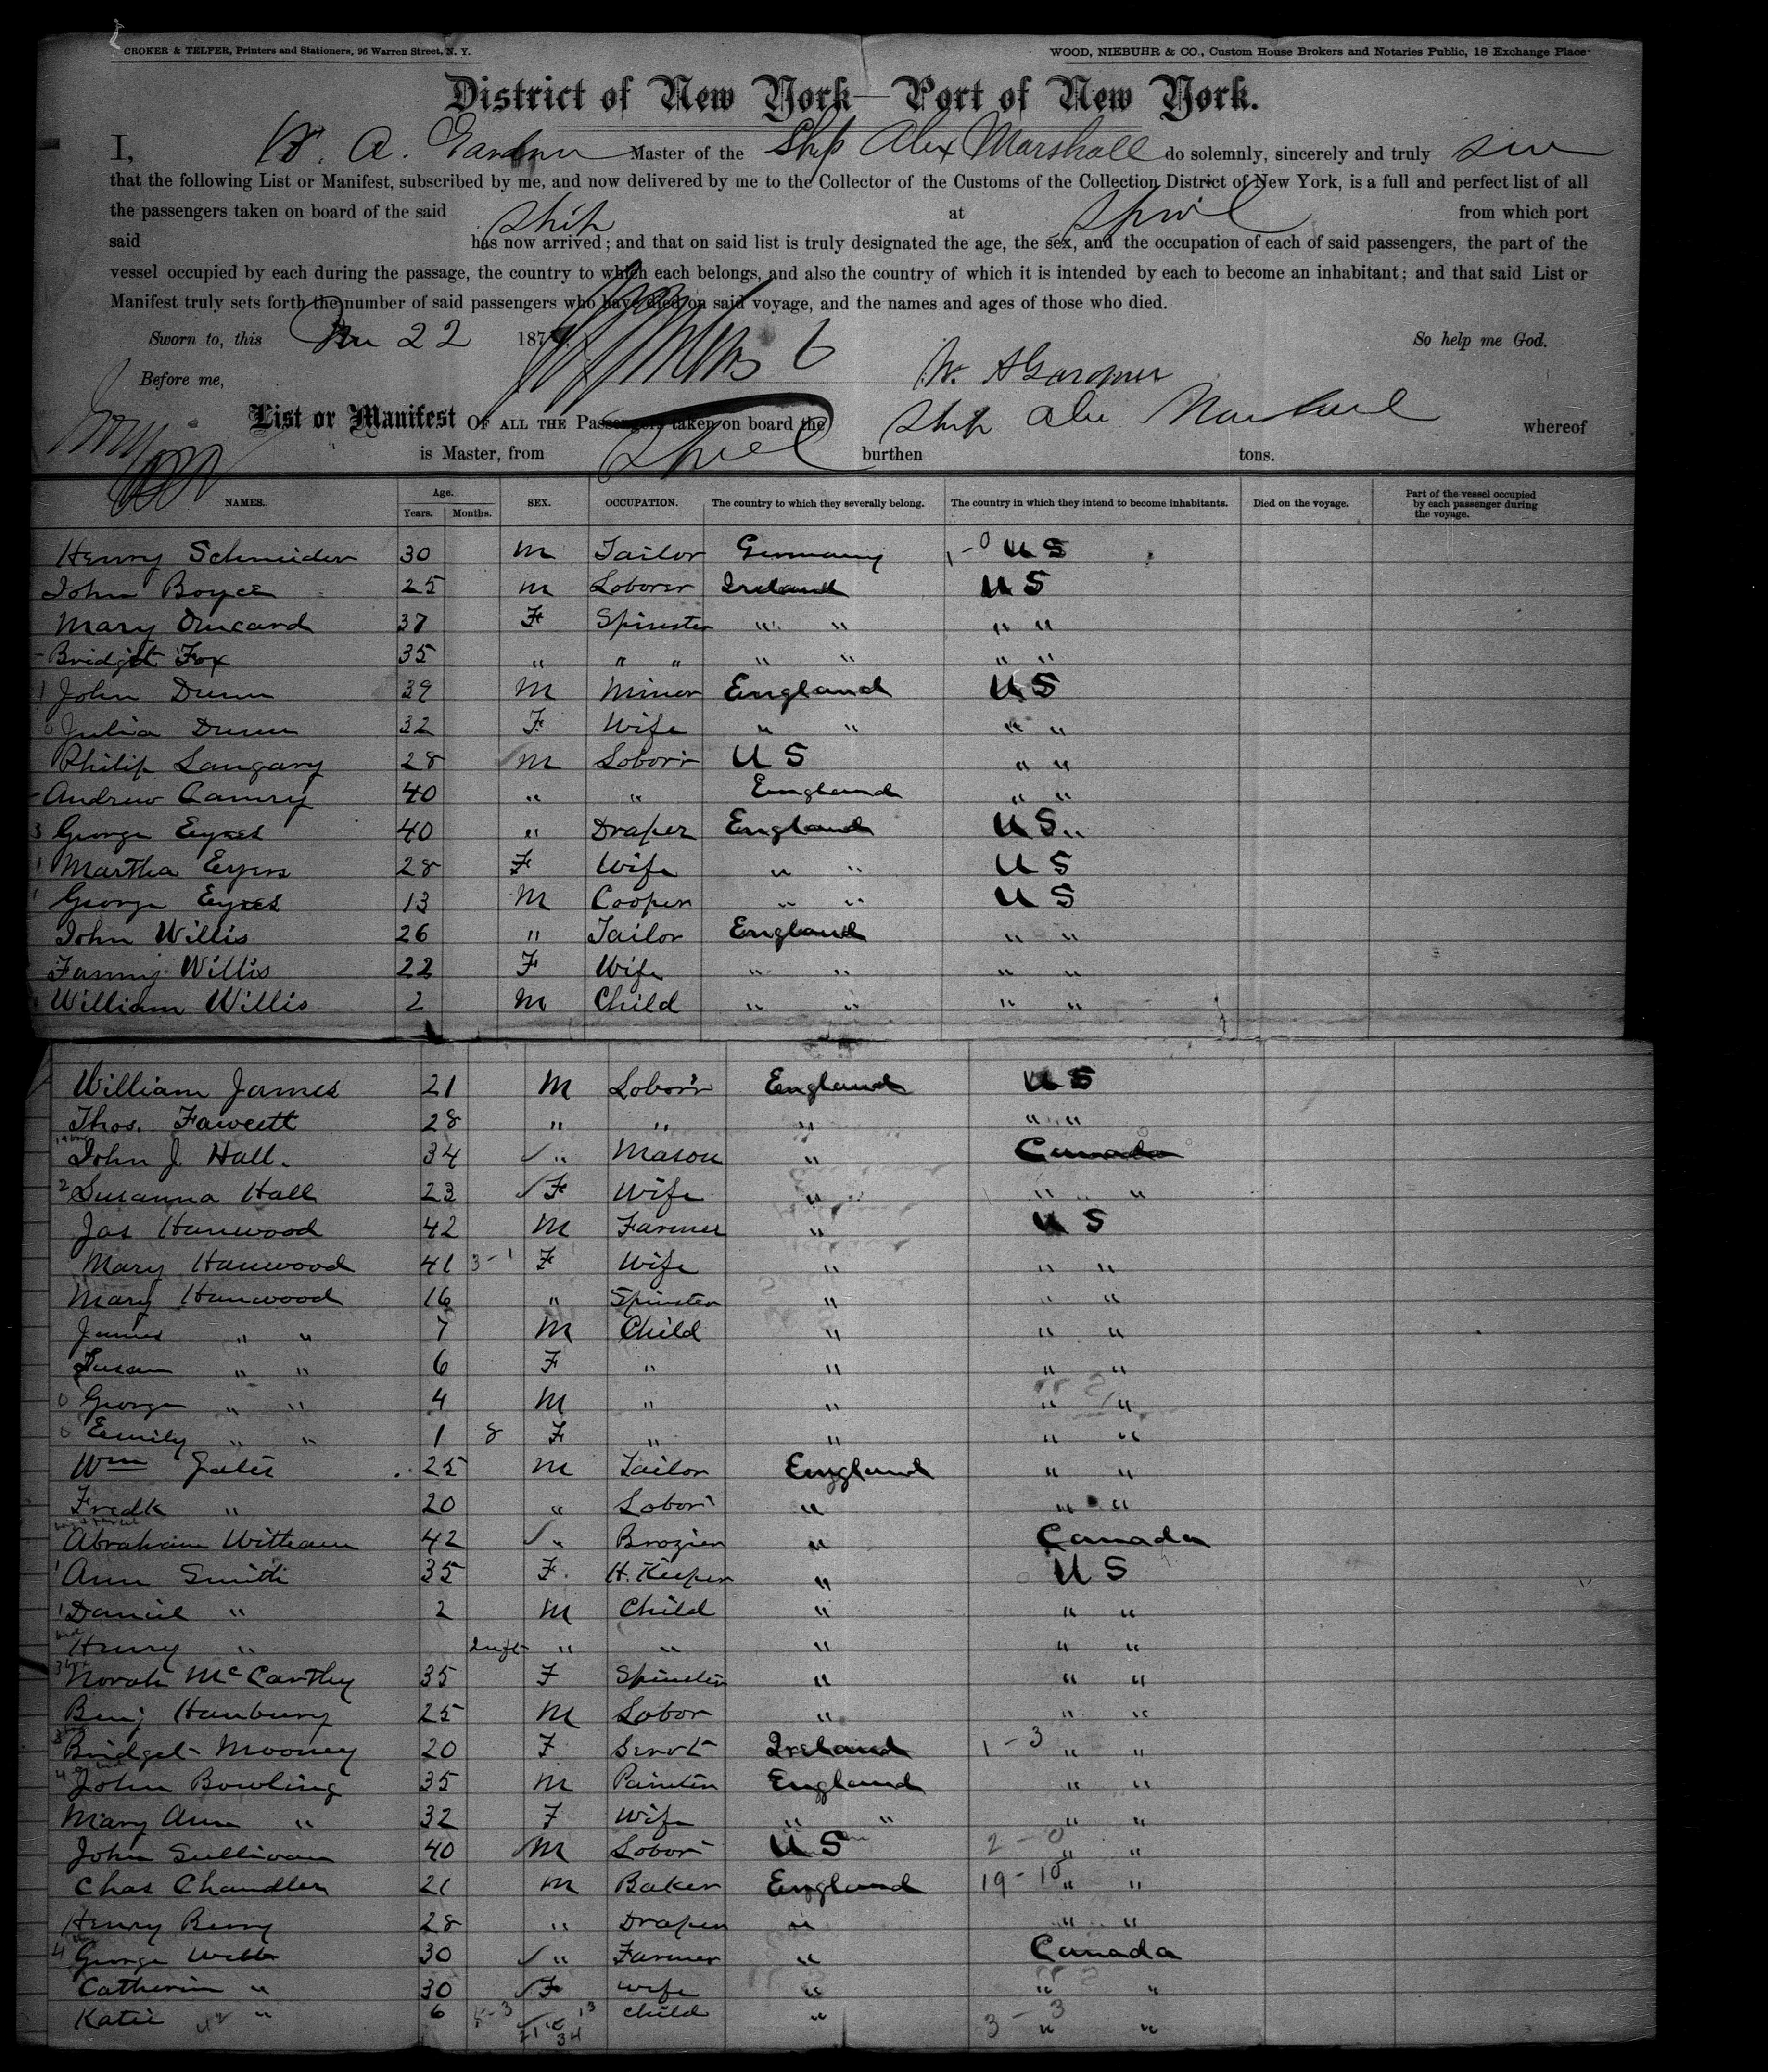 CROKER & TELFER, Printers and Stationers, 96 Warren Street, N. Y.
WOOD, NIEBUHR & CO., Custom House Brokers and Notaries Public, 18 Exchange Place
District of New York—Port of New York.
I, W. A. Gardner Master of the Ship Alex Marshall do solemnly, sincerely and truly
that the following List or Manifest, subscribed by me, and now delivered by me to the Collector of the Customs of the Collection District of New York, is a full and perfect list of all
the passengers taken on board of the said Ship at from which port
said has now arrived; and that on said list is truly designated the age, the sex, and the occupation of each of said passengers, the part of the
vessel occupied by each during the passage, the country to which each belongs, and also the country of which it is intended by each to become an inhabitant; and that said List or
Manifest truly sets forth the number of said passengers who have died on said voyage, and the names and ages of those who died.
Sworn to, this 22 187 So help me God.
Before me, W. A Gardner
List or Manifest OF ALL THE Passengers taken on board the Ship Alex Marshall whereof
is Master, from burthen tons.
NAMES. Age. Years. Months. SEX. OCCUPATION. The country to which they severally belong. The country in which they intend to become inhabitants. Died on the voyage. Part of the vessel occupied by each passenger during the voyage.
Henry Schneider 30 M Tailor Germany 1-0 U S
John Boyce 25 M Laborer Ireland U S
Mary 37 F Spinster " " " "
Bridget Fox 35 " " " " " " "
John Dunn 39 M Minor England U S
Julia Dunn 32 F Wife " " " "
Philip Langary 28 M Labor'r U S " "
Andrew 40 " " England " "
George Eyres 40 " Draper England U S "
Martha Eyres 28 F Wife " " U S
George Eyres 13 M Cooper " " U S
John Willis 26 " Tailor England " "
Fanny Willis 22 F Wife " " " "
William Willis 2 M Child " " " "
William James 21 M Labor'r England U S
Thos. Fawcett 28 " " " " "
John J. Hall. 34 " Mason " Canada
2 Susanna Hall 23 F Wife " " "
Jas Hanwood 42 M Farmer " U S
Mary Hanwood 41 3-1 F Wife " " "
Mary Hanwood 16 " Spinster " " "
James " " 7 M Child " " "
Susan " " 6 F " " " "
0 George " " 4 M " " " "
0 Emily " " 1 8 F " " " "
Wm 25 M Tailor England " "
Fredk " 20 " Labor' " " "
Abraham Witham 42 " Brazier " Canada
1 Ann Smith 35 F. H. Keeper " U S
1 Daniel " 2 M Child " " "
Henry " Inft " " " " "
Norah McCarthy 35 F Spinster " " "
Benj Hanbury 25 M Labor " " "
Bridget Mooney 20 F Servt Ireland 1-3 " "
John Bowling 35 M Painter England " "
Mary Ann " 32 F Wife " " " "
John Sullivan 40 M Labor U S 2-0 " "
Chas Chandler 21 M Baker England 19-10 " "
Henry Berry 28 " Draper " " "
4 George Webb 30 " Farmer " Canada
Catherin " 30 F Wife " " "
Katie " 6 Child " 3-3 " "